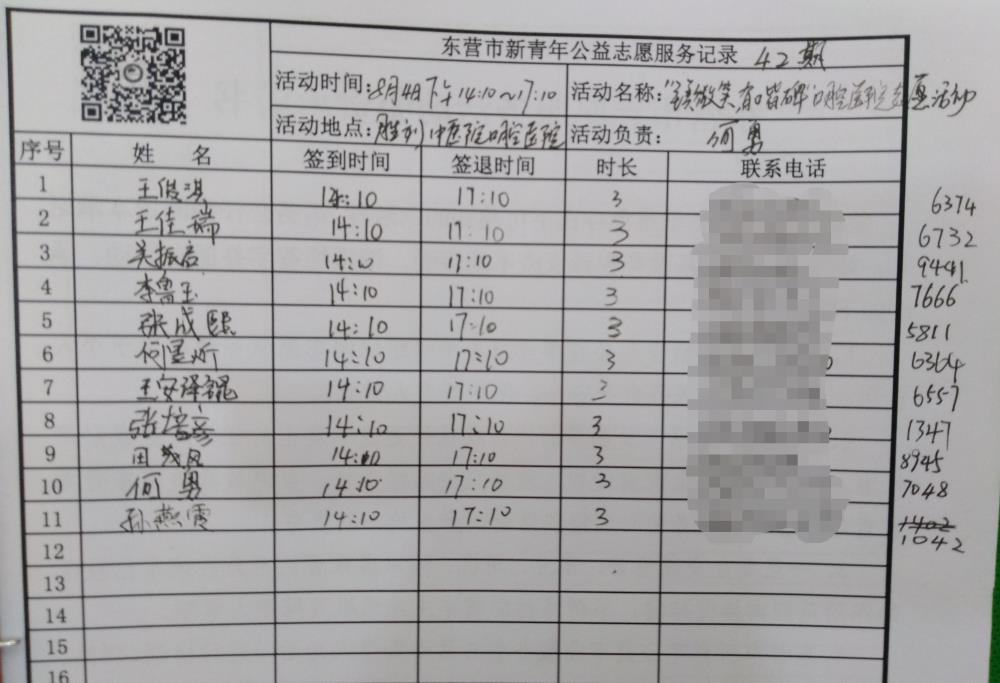 东营市新青年公益志愿服务记录 42期
活动时间:8月4日下午14:10~17:10 活动名称:"臻美微笑,有口皆碑"口腔医院志愿活动
活动地点:胜利中医院口腔医院 活动负责: 何勇
序号 姓 名 签到时间 签退时间 时长 联系电话
1 王俊淇 14:10 17:10 3 6374
2 王佳瑞 14:10 17:10 3 6732
3 吴振启 14:10 17:10 3 9441
4 李鲁玉 14:10 17:10 3 7666
5 张成熙 14:10 17:10 3 5811
6 何昱炘 14:10 17:10 3 6364
7 王安泽锟 14:10 17:10 3 6557
8 张培彦 14:10 17:10 3 1347
9 田茂风 14:10 17:10 3 8945
10 何勇 14:10 17:10 3 7048
11 孙燕霞 14:10 17:10 3 1402
1042
12
13
14
15
16